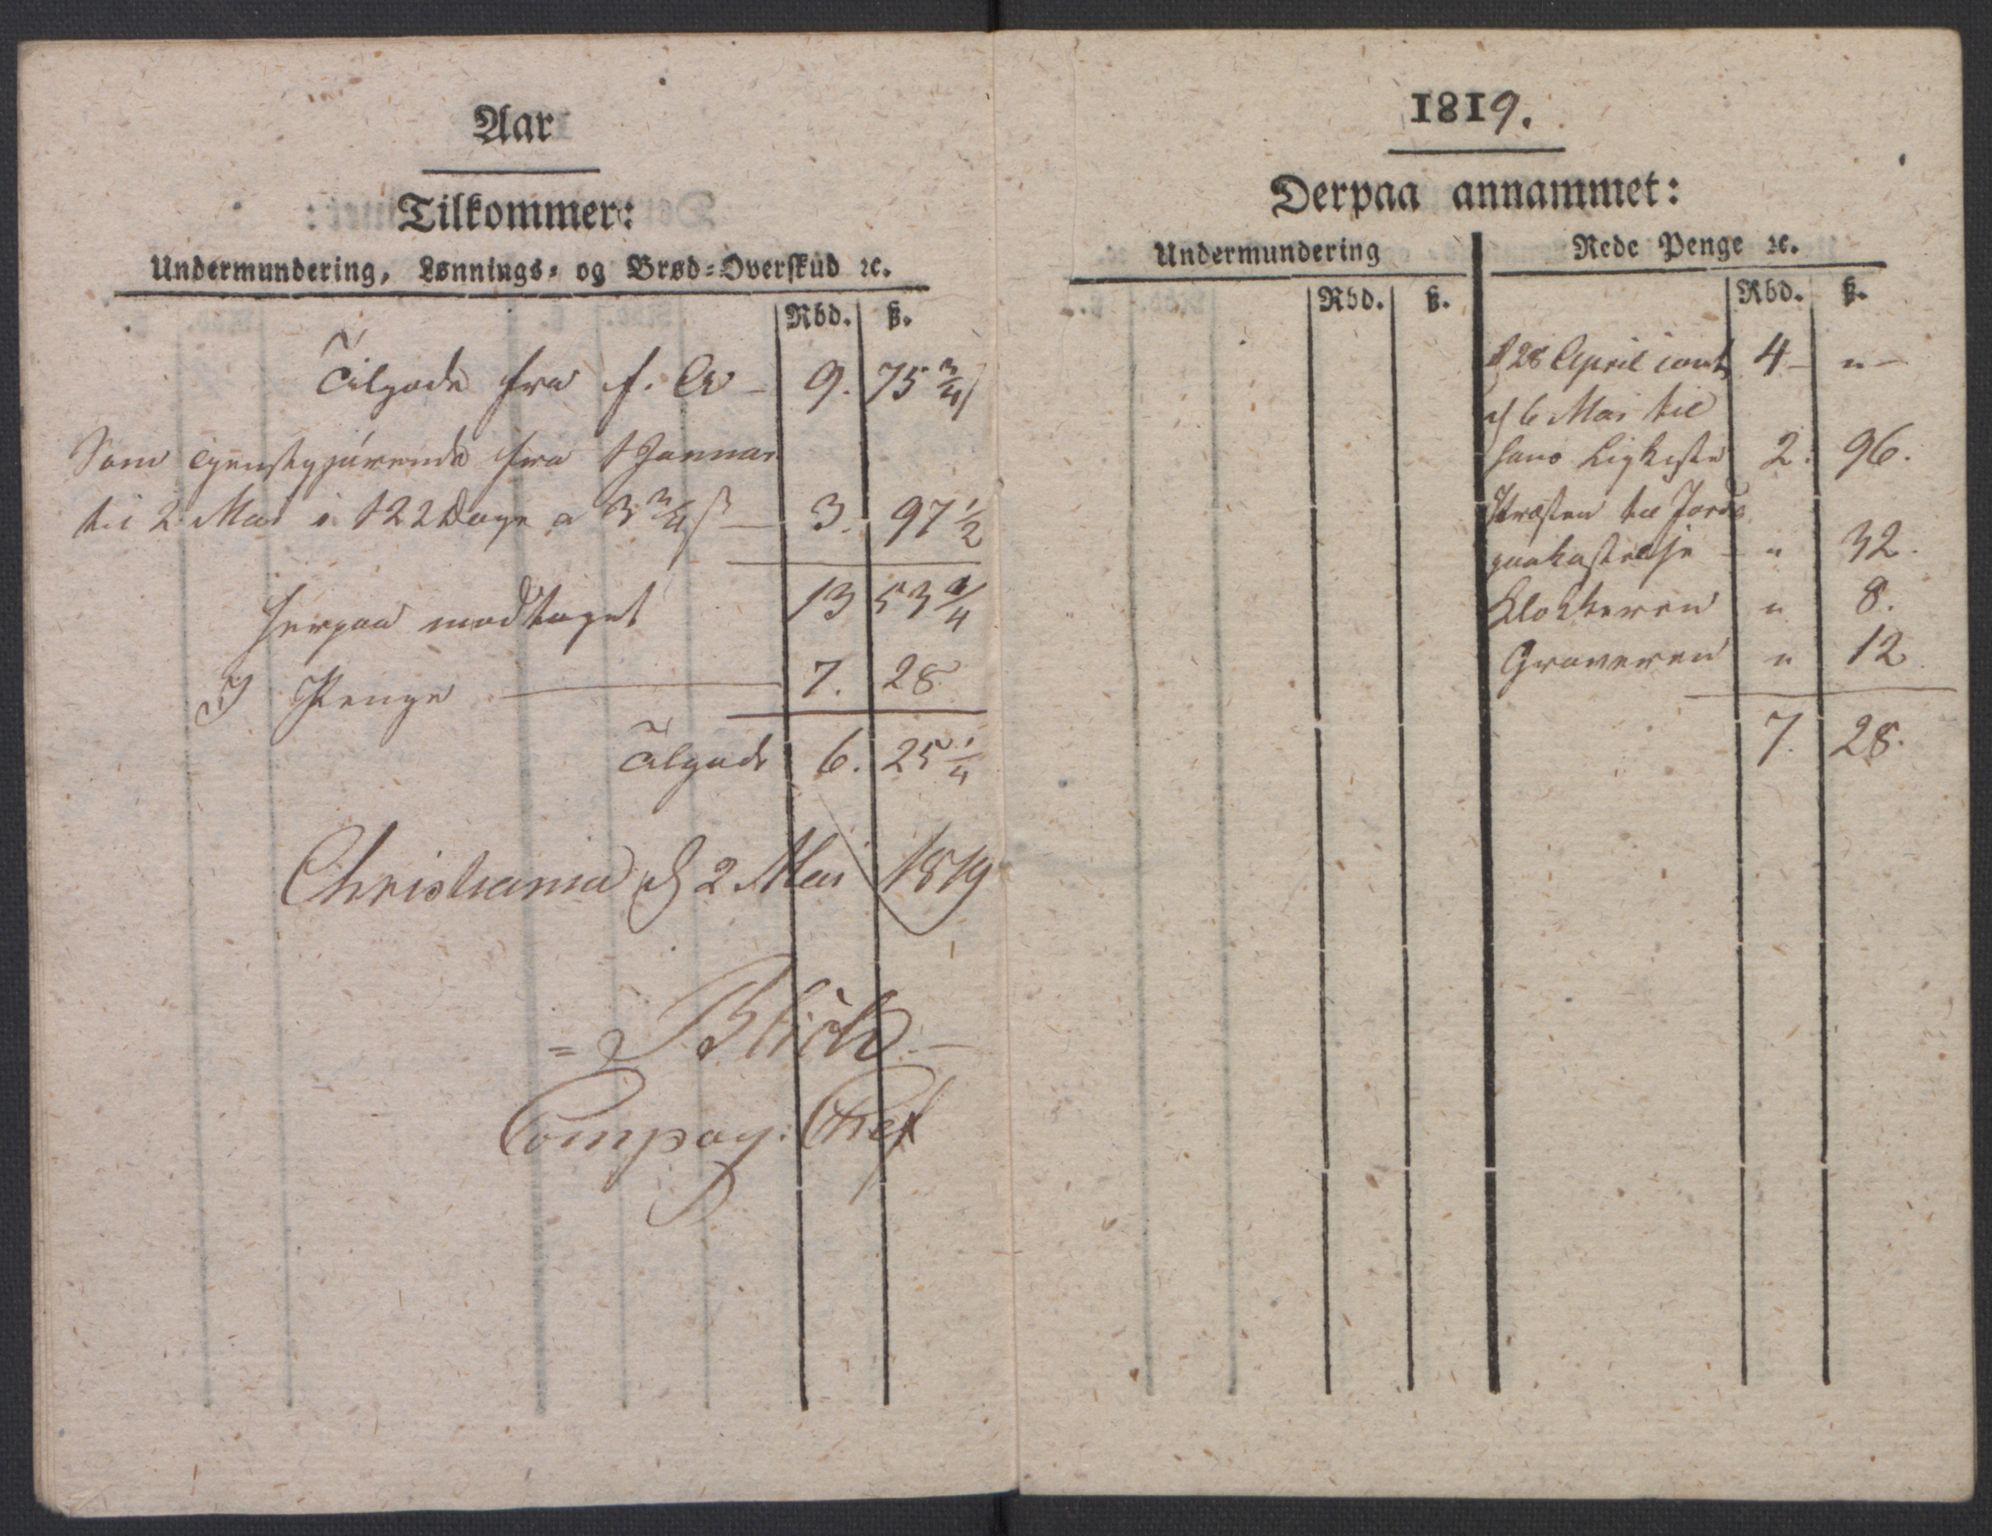 Aar
Tilkommer:
Undermundering, Lønnings- og Brød-Overskud ⁊c.
Rbd. ß.
Tilgode fra f. A 9. 75 3/4
Som tjenstgjørende fra 1 Januar
til 2 Mai i 122 Dage a 3 3/4 ß 3. 97 1/2
13 53 1/4
herpaa modtaget
I Penge 7. 28
Tilgode 6. 25 1/4
Christiania d 2 Mai 1819
Blich
Compag: Chef
1819.
Derpaa annammet:
Undermundering Rede Penge ⁊c.
Rbd. ß. Rbd. ß.
d 28 April cont 4 "
d 6 Mai til
hans Ligkiste 2. 96.
Præsten for Jords
paakastelse " 32.
Klokkeren " 8.
Graveren " 12
7. 28.